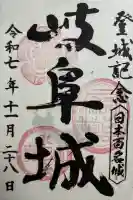 登城記念
日本百名城
岐阜城
令和七年十一月二十八日